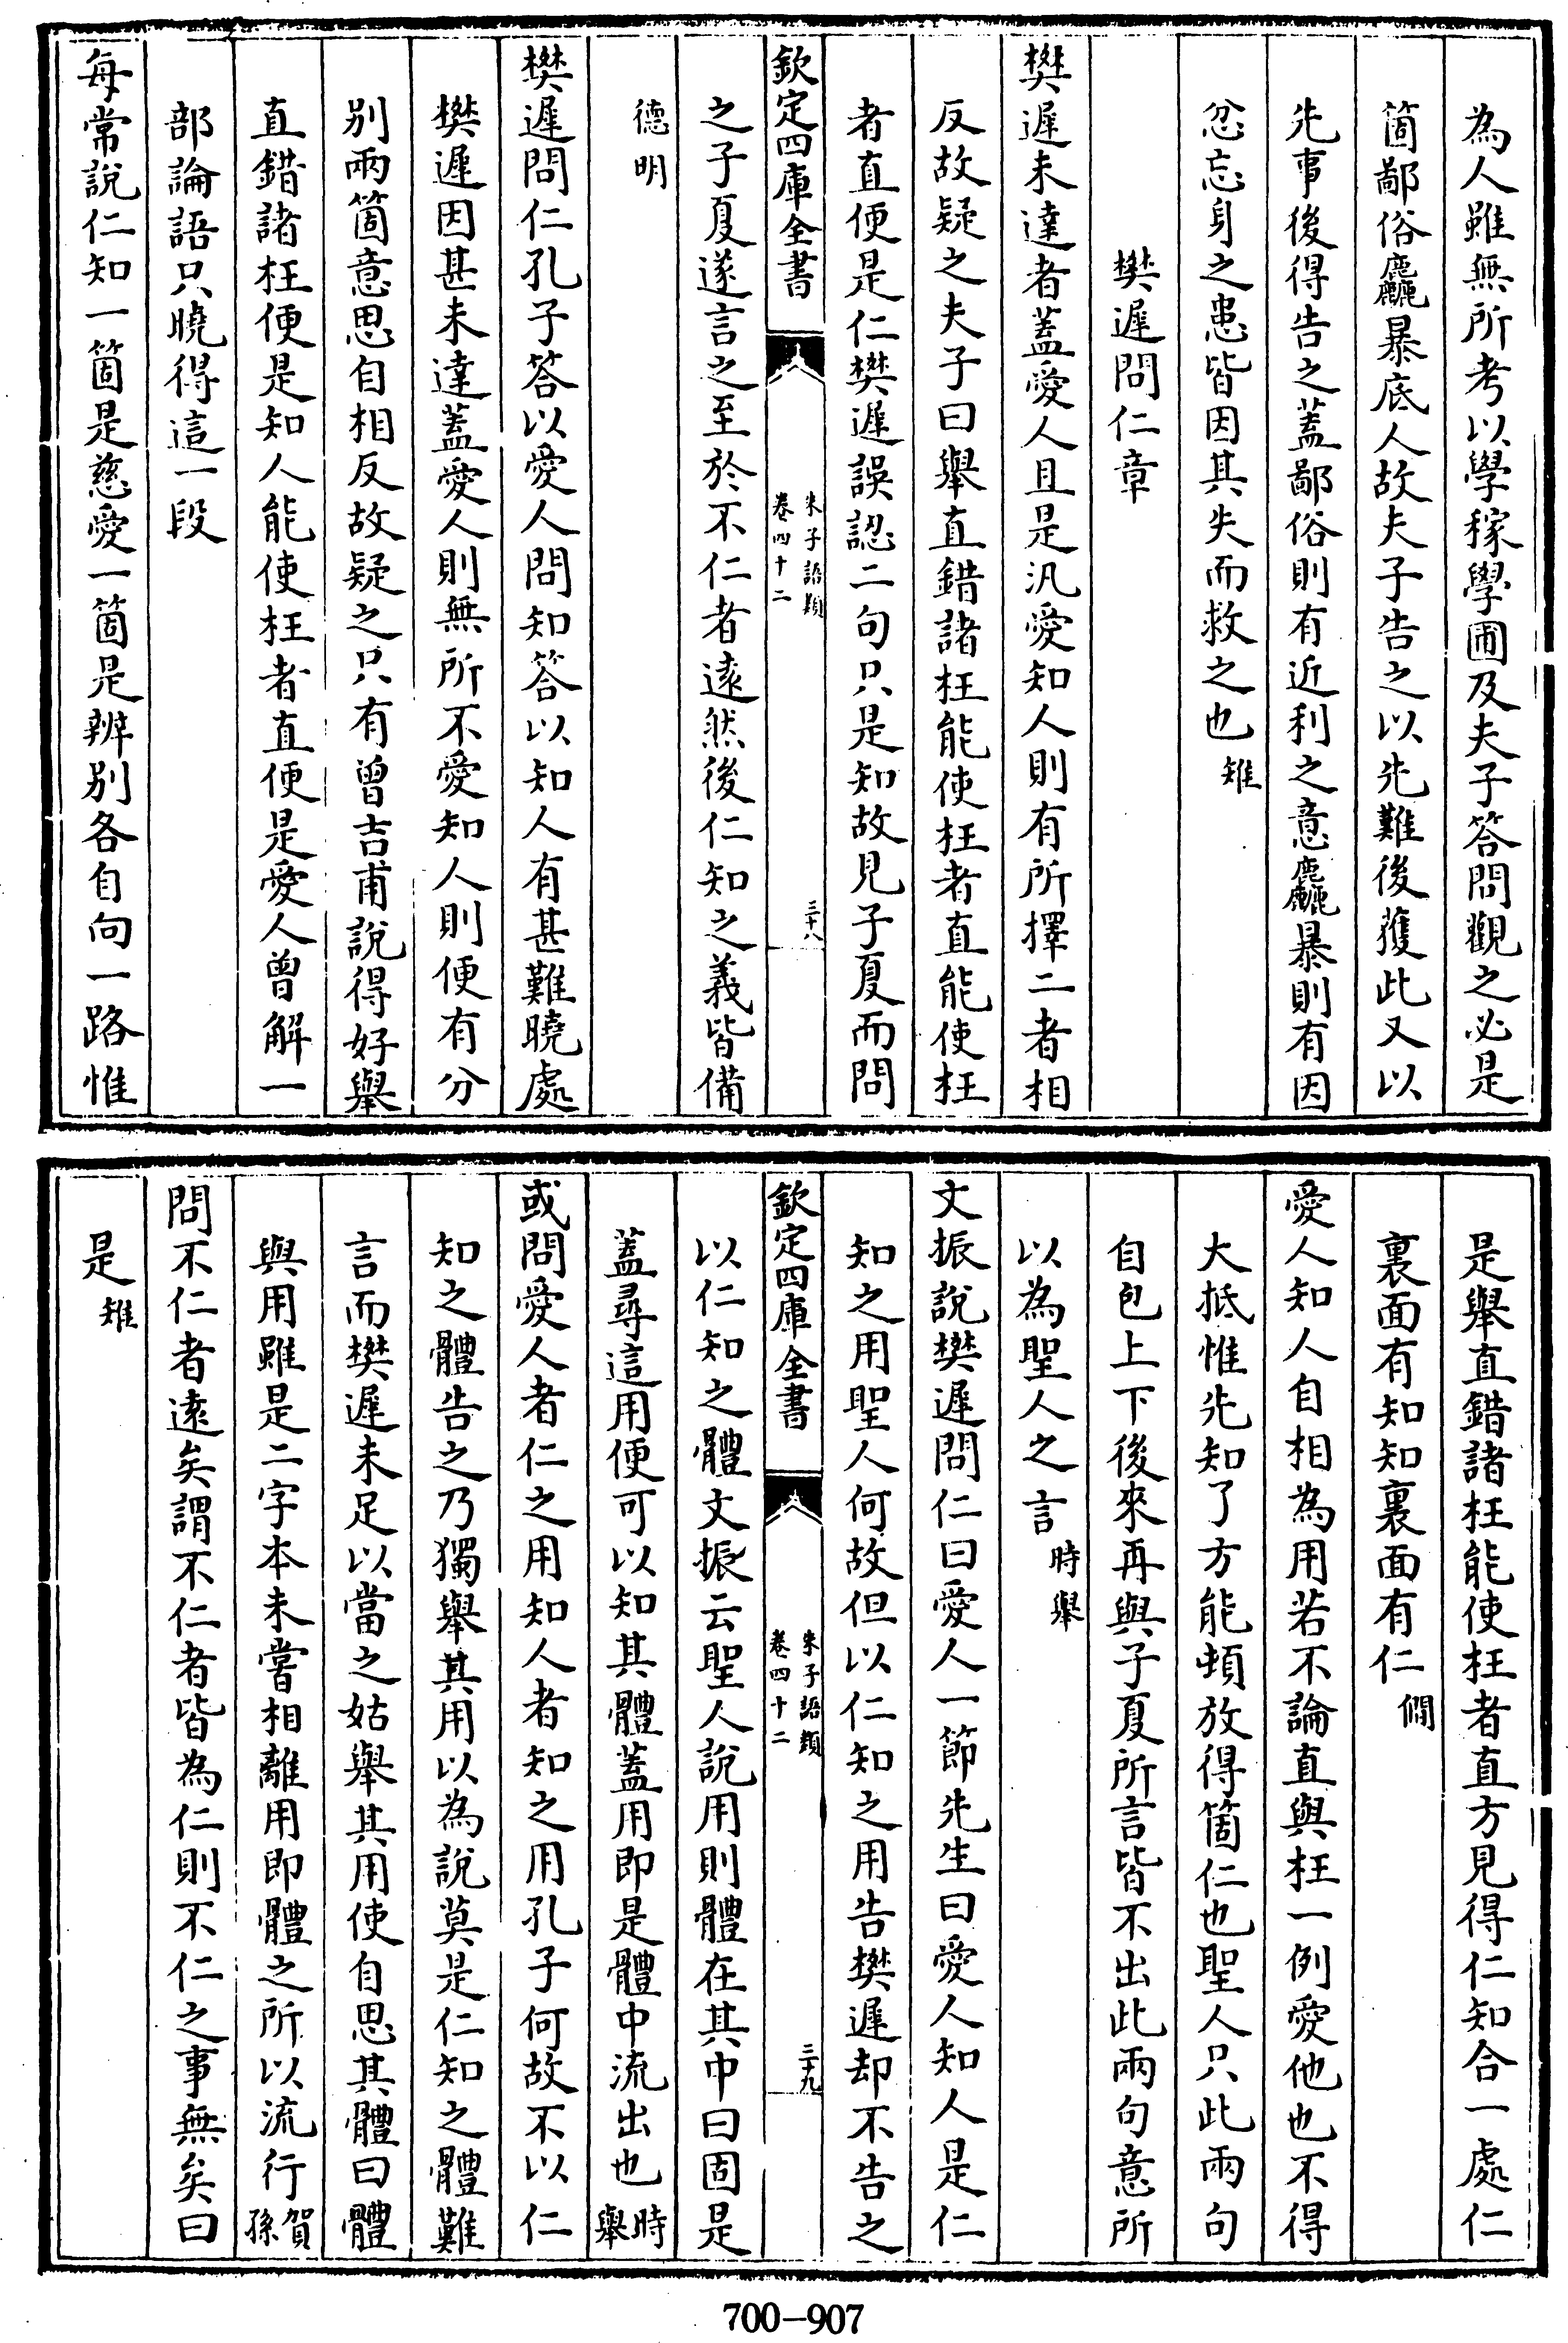 為人雖無所考以學稼學圃及夫子答問觀之必是
箇鄙俗麤暴底人故夫子告之以先難後獲此又以
先事後得告之蓋鄙俗則有近利之意麤暴則有因
忿忘身之患皆因其失而救之也雉
樊遲問仁章
樊遲未達者蓋愛人且是汎愛知人則有所擇二者相
反故疑之夫子曰舉直錯諸枉能使枉者直能使枉
者直便是仁樊遲誤認二句只是知故見子夏而問
欽定四庫全書
朱子語類
卷四十二
三十八
之子夏遂言之至於不仁者遠然後仁知之義皆備
德明
樊遲問仁孔子答以愛人問知答以知人有甚難曉處
樊遲因甚未達蓋愛人則無所不愛知人則便有分
别兩箇意思自相反故疑之只有曾吉甫說得好舉
直錯諸枉便是知人能使枉者直便是愛人曾解一
部論語只曉得這一段
每常說仁知一箇是慈愛一箇是辨别各自向一路惟
是舉直錯諸枉能使枉者直方見得仁知合一處仁
裏面有知知裏面有仁僩
愛人知人自相為用若不論直與枉一例愛他也不得
大抵惟先知了方能頓放得箇仁也聖人只此兩句
自包上下後來再與子夏所言皆不出此兩句意所
以為聖人之言時舉
文振說樊遲問仁曰愛人一節先生曰愛人知人是仁
知之用聖人何故但以仁知之用告樊遲却不告之
欽定四庫全書
朱子語類
卷四十二
三十九
以仁知之體文振云聖人說用則體在其中曰固是
蓋尋這用便可以知其體蓋用即是體中流出也時舉
或問愛人者仁之用知人者知之用孔子何故不以仁
知之體告之乃獨舉其用以為說莫是仁知之體難
言而樊遲未足以當之姑舉其用使自思其體曰體
與用雖是二字本未嘗相離用即體之所以流行賀孫
問不仁者遠矣謂不仁者皆為仁則不仁之事無矣曰
是雉
700-907